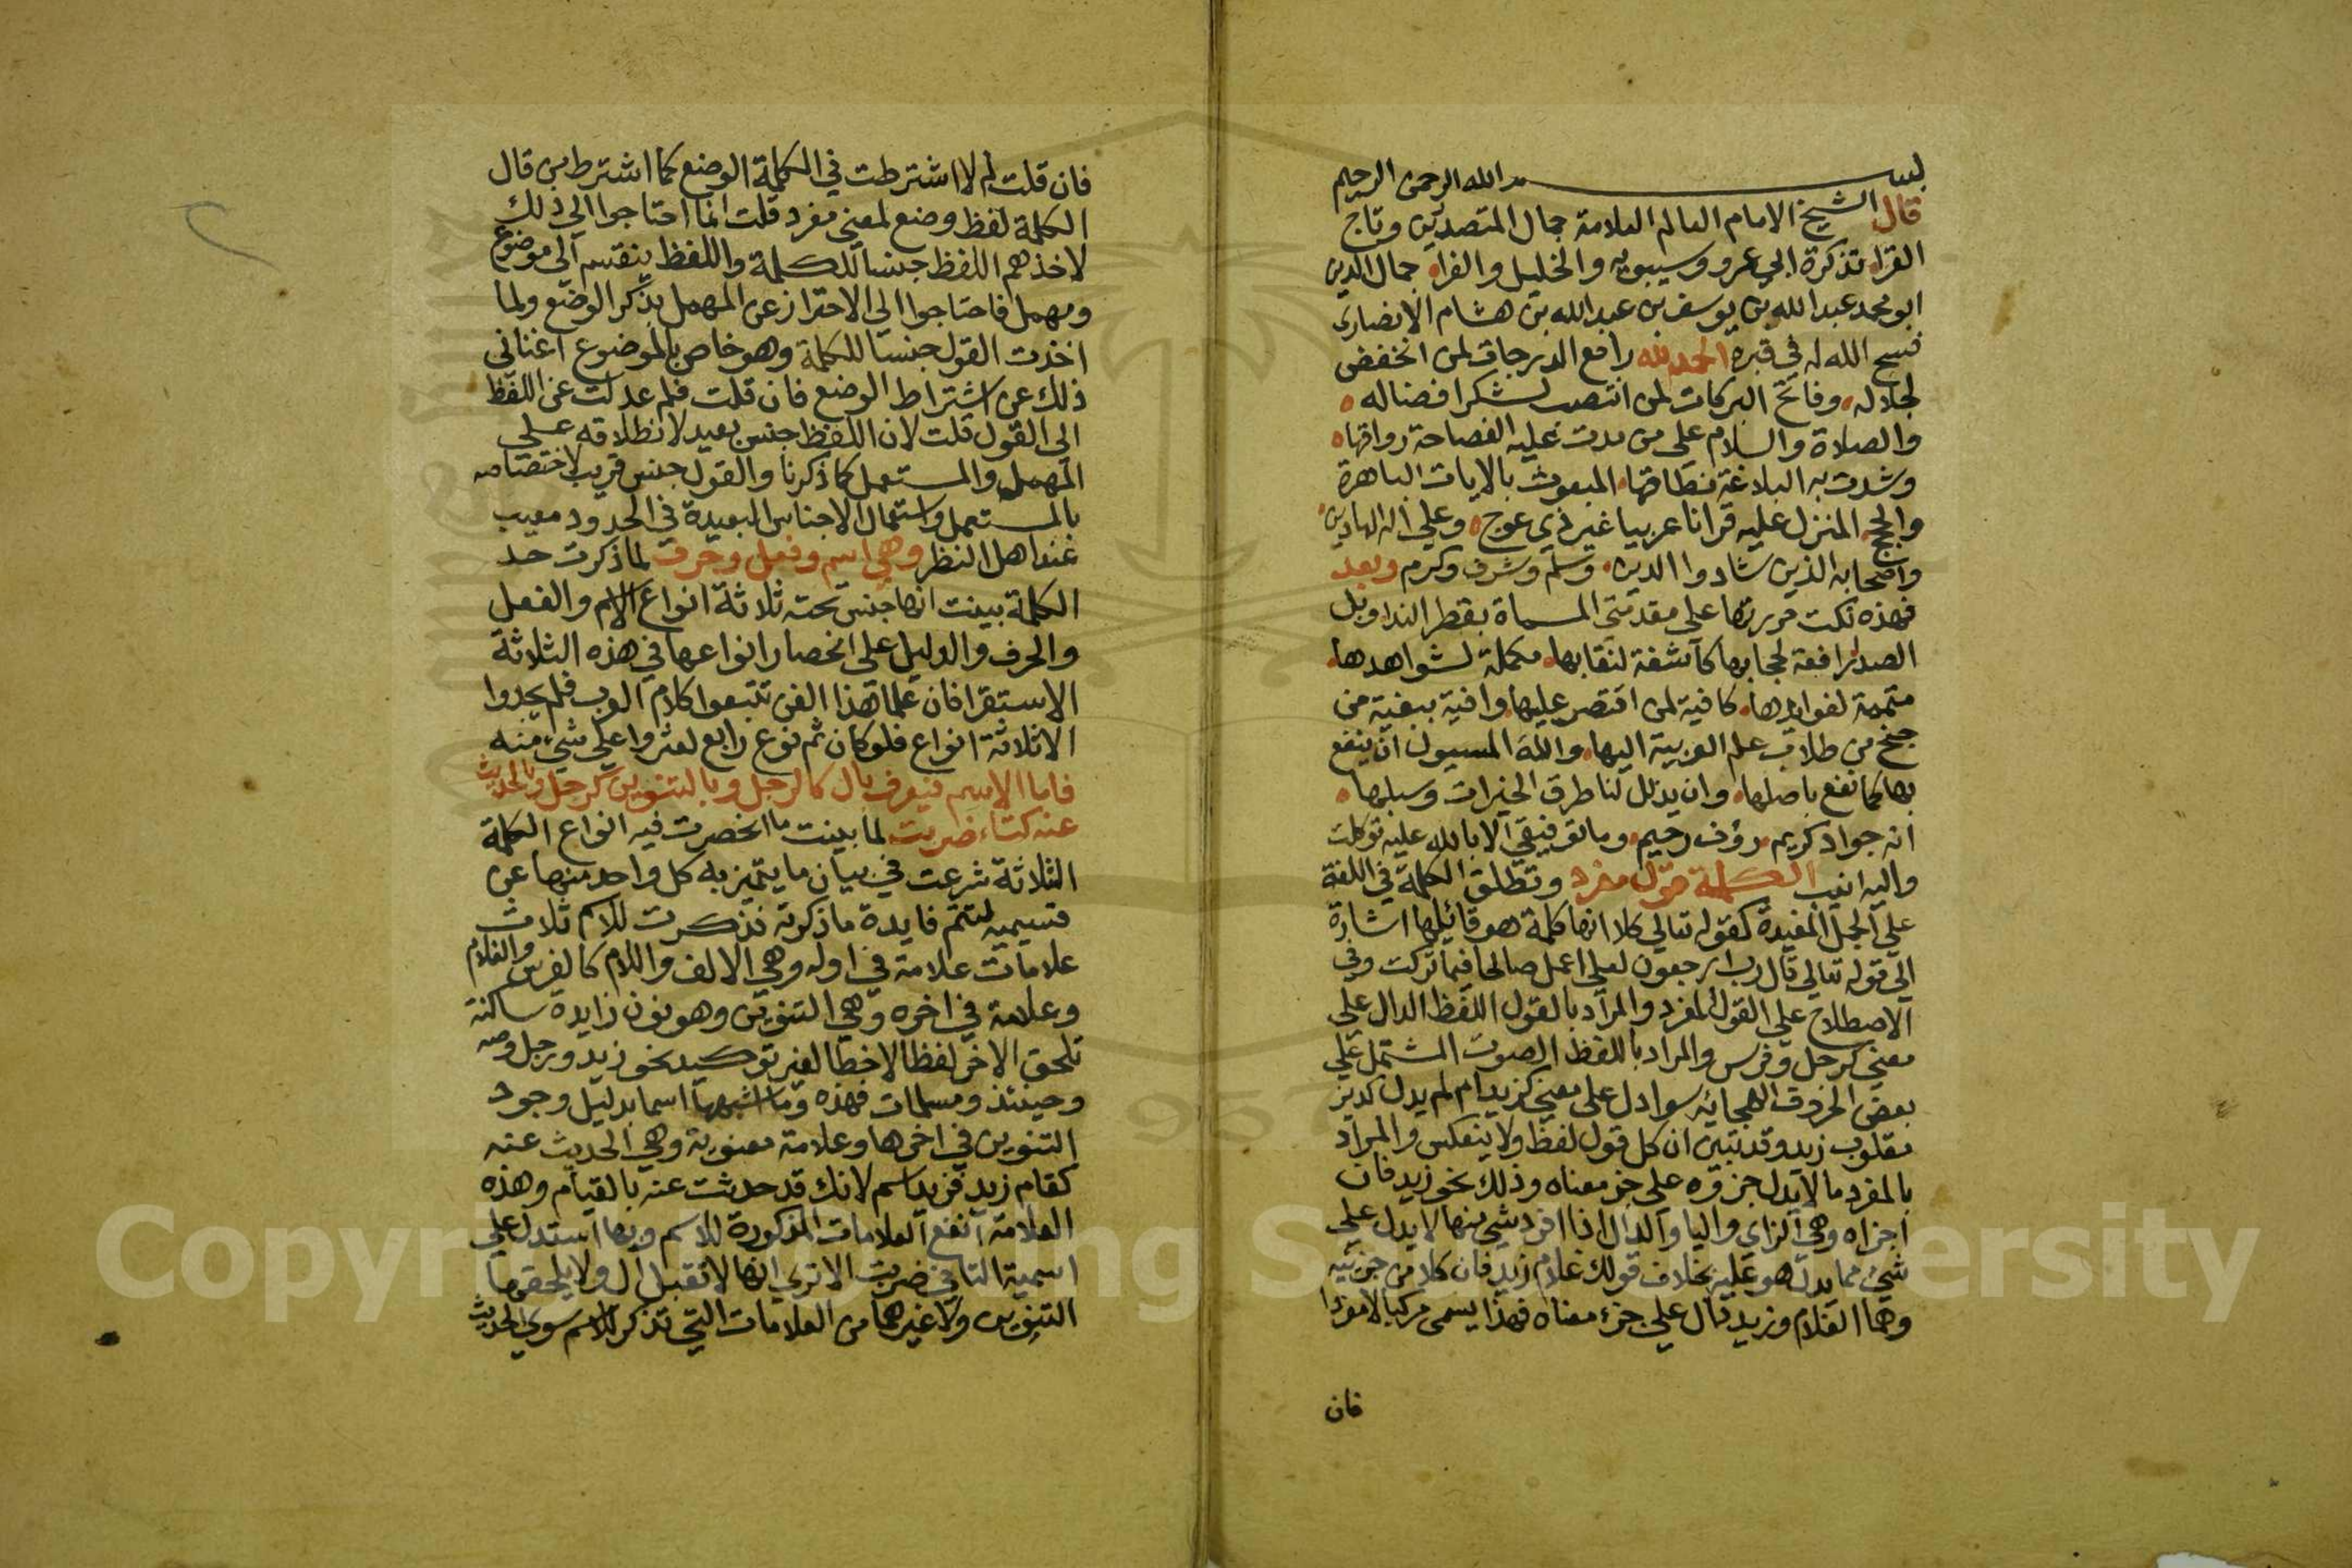 بسم الله الرحمن الرحيم
قال الشيخ الامام العالم العلامة جمال المتصدرين وتاج
القراء تذكرة ابي عمرو وسيبويه والخليل والفراء جمال الدين
ابو محمد عبد الله بن يوسف بن عبد الله بن هشام الانصاري
فسح الله له في قبره الحمد لله رافع الدرجات لمن انخفض
لجلاله وفاتح البركات لمن انتصب لشكر افضاله
والصلاة والسلام على من مدت عليه الفصاحة رواقها
وشدت به البلاغة نطاقها المبعوث بالايات الباهرة
والحجج المنزل عليه قرانا عربيا غير ذي عوج وعلي اله الهادين
واصحابه الذين شادوا الدين وسلم وشرف وكرم وبعد
فهذه نكت حررتها على مقدمتي المسماة بقطر الندا وبل
الصدا رافعة لحجابها كاشفة لنقابها مكملة لشواهدها
متممة لفوايدها كافية لمن اقتصر عليها وافية ببغية من
جنح من طلاب علم العربية اليها والله المسيول ان ينفع
بها كما نفع باصلها وان يذلل لنا طرق الخيرات وسبلها
انه جواد كريم رؤف رحيم وما توفيقي الا بالله عليه توكلت
واليه انيب الكلمة قول مفرد وتطلق الكلمة في اللغة
على الجمل المفيدة كقوله تعالي كلا انها كلمة هو قائلها اشارة
الي قوله تعالي قال رب ارجعون لعلي اعمل صالحا فيما تركت وفي
الاصطلاح علي القول المفرد والمراد بالقول اللفظ الدال على
معني كرجل وفرس والمراد باللفظ الصوت المشتمل علي
بعض الحروف الهجائيه سوا دل على معني كزيد ام لم يدل كديز
مقلوب زيد وقد تبين ان كل قول لفظ ولا ينعكس والمراد
بالمفرد ما لا يدل جزؤه علي جز معناه وذلك نحو زيد فان
اجزاه وهي الزاي واليا والدال اذا افرد شي منها لا يدل علي
شي مما يدل هو عليه بخلاف قولك غلام زيد فان كلا من جزئيه
وهما الغلام وزيد دال علي جزء معناه فهذا يسمى مركبا لا مفردا
فان
فان قلت لم لا اشترطت في الكلمة الوضع كما اشترط من قال
الكلمة لفظ وضع لمعني مفرد قلت انما احتاجوا الي ذلك
لاخذهم اللفظ جنسا للكلمة واللفظ ينقسم الي موضوع
ومهمل فاحتاجوا الي الاحتراز عن المهمل بذكر الوضع ولما
اخذت القول جنسا للكلمة وهو خاص بالموضوع اغناني
ذلك عن اشتراط الوضع فان قلت فلم عدلت عن اللفظ
الى القول قلت لان اللفظ جنس بعيد لانطلاقه علي
المهمل والمستعمل كما ذكرنا والقول جنس قريب لاختصاصه
بالمستعمل واستعمال الاجناس البعيدة في الحدود معيب
عند اهل النظر وهي اسم وفعل وحرف لما ذكرت حد
الكلمة بينت انها جنس تحته ثلاثة انواع الاسم والفعل
والحرف والدليل على انحصار انواعها في هذه الثلاثة
الاستقرا فان علما هذا الفن تتبعوا كلام العرب فلم يجدوا
الا ثلاثة انواع فلو كان ثم نوع رابع لعثروا علي شي منه
فاما الاسم فيعرف بال كالرجل وبالتنوين كرجل وبالحديث
عنه كتاء ضربت لما بينت ما انحصرت فيه انواع الكلمة
الثلاثة شرعت في بيان ما يتميز به كل واحد منها عن
قسيميه لتتم فايدة ما ذكرته فذكرت للاسم ثلاث
علامات علامة في اوله وهي الالف واللام كالفرس والغلام
وعلامة في اخره وهي التنوين وهو نون زايدة ساكنة
تلحق الاخر لفظا لا خطا لغير توكيد نحو زيد ورجل وصه
وحينئذ ومسلمات فهذه وما اشبهها اسما بدليل وجود
التنوين في اخرها وعلامة معنوية وهي الحديث عنه
كقام زيد فزيد اسم لانك قد حدثت عنه بالقيام وهذه
العلامة انفع العلامات المذكورة للاسم وبها استدل علي
اسمية التا في ضربت الا تري انها لا تقبل ال ولا يلحقها
التنوين ولا غيرهما من العلامات التي تذكر للاسم سوي الحديث
Copyright © King Saud University